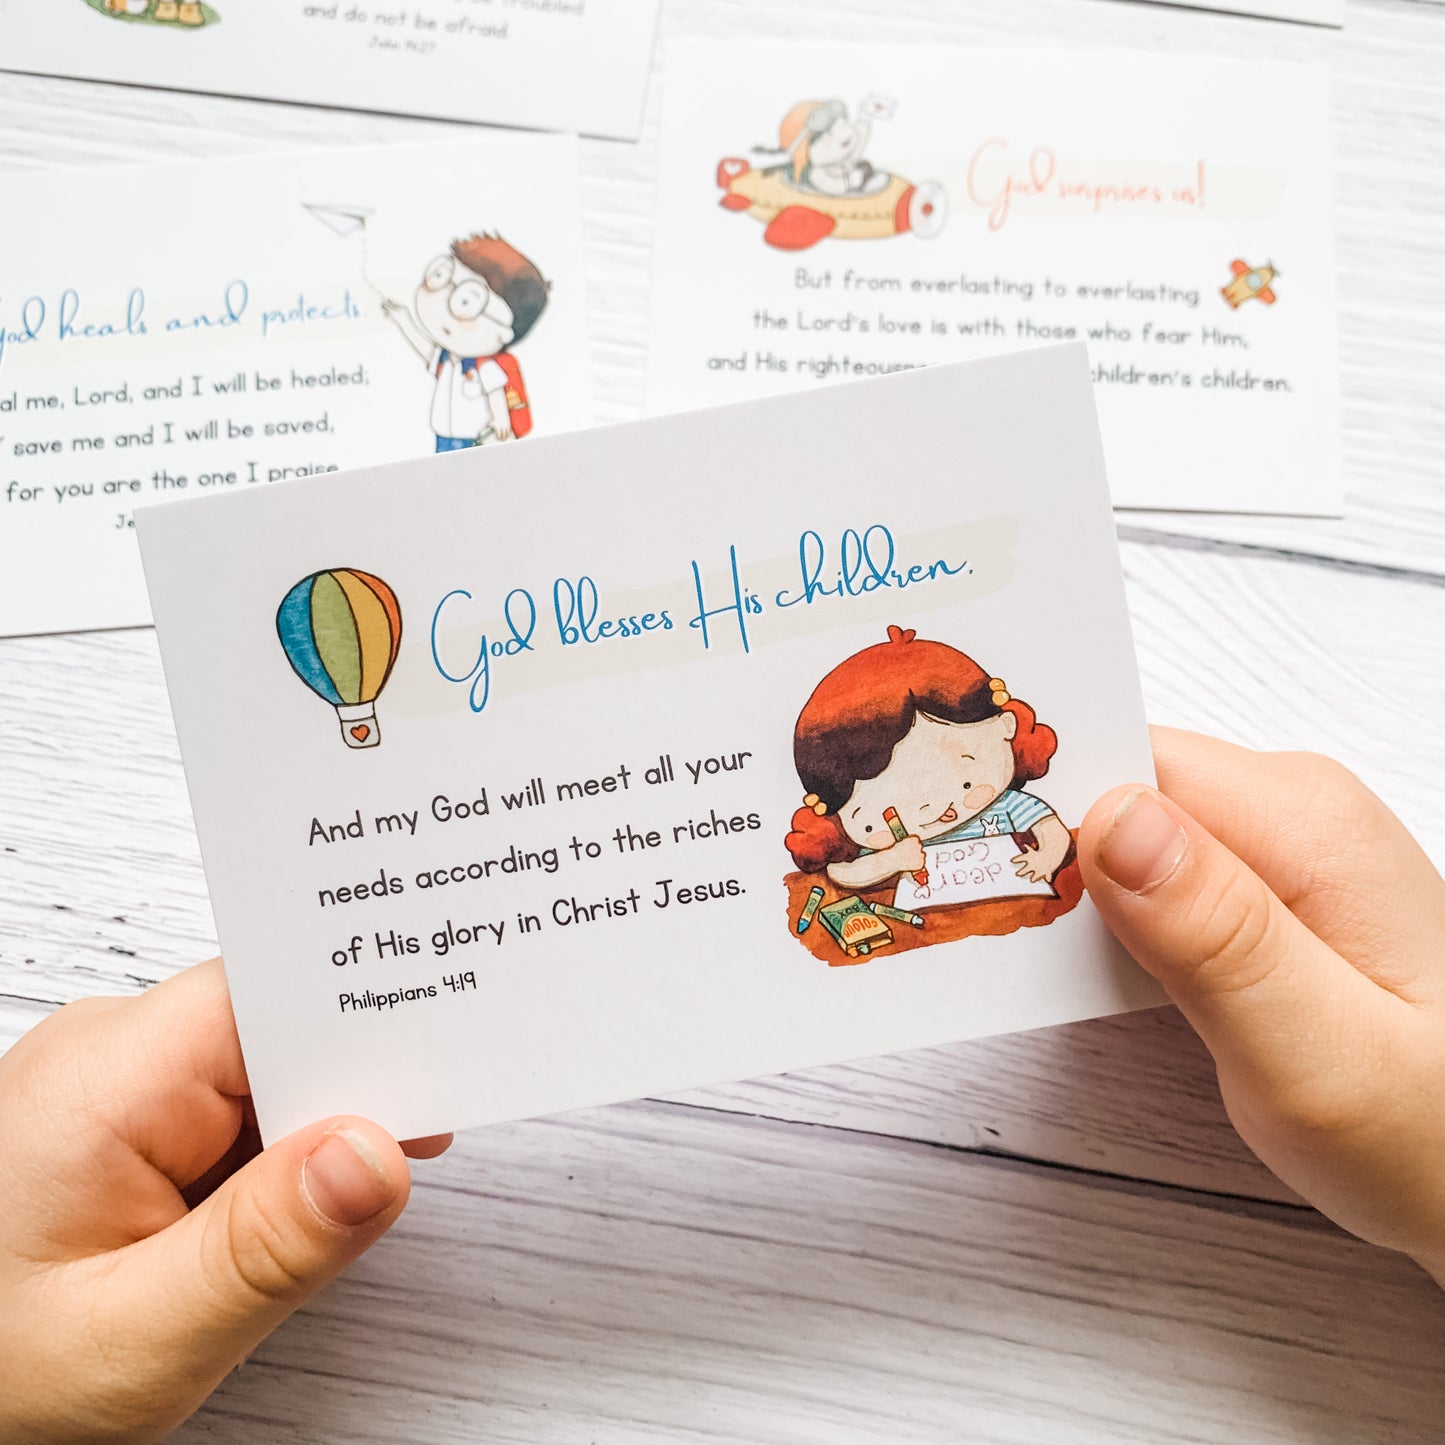 and do not be afraid.
John 14:27
God surprises us!
But from everlasting to everlasting
the Lord's love is with those who fear Him,
and His children's children.
God heals and protects.
me, Lord, and I will be healed;
save me and I will be saved,
for you are the one I praise
God blesses His children.
And my God will meet all your
needs according to the riches
of His glory in Christ Jesus.
Philippians 4:19
dear
God
COLOUR
BOX